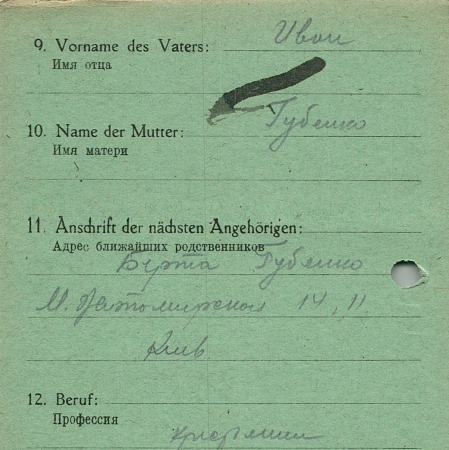 9. Vorname des Vaters: Иван
Имя отца
10. Name der Mutter: Губенко
Имя матери
11. Anschrift der nächsten Angehörigen:
Адрес ближайших родственников
Берта Губенко
М. 14, 11
Киев
12. Beruf:
Профессия